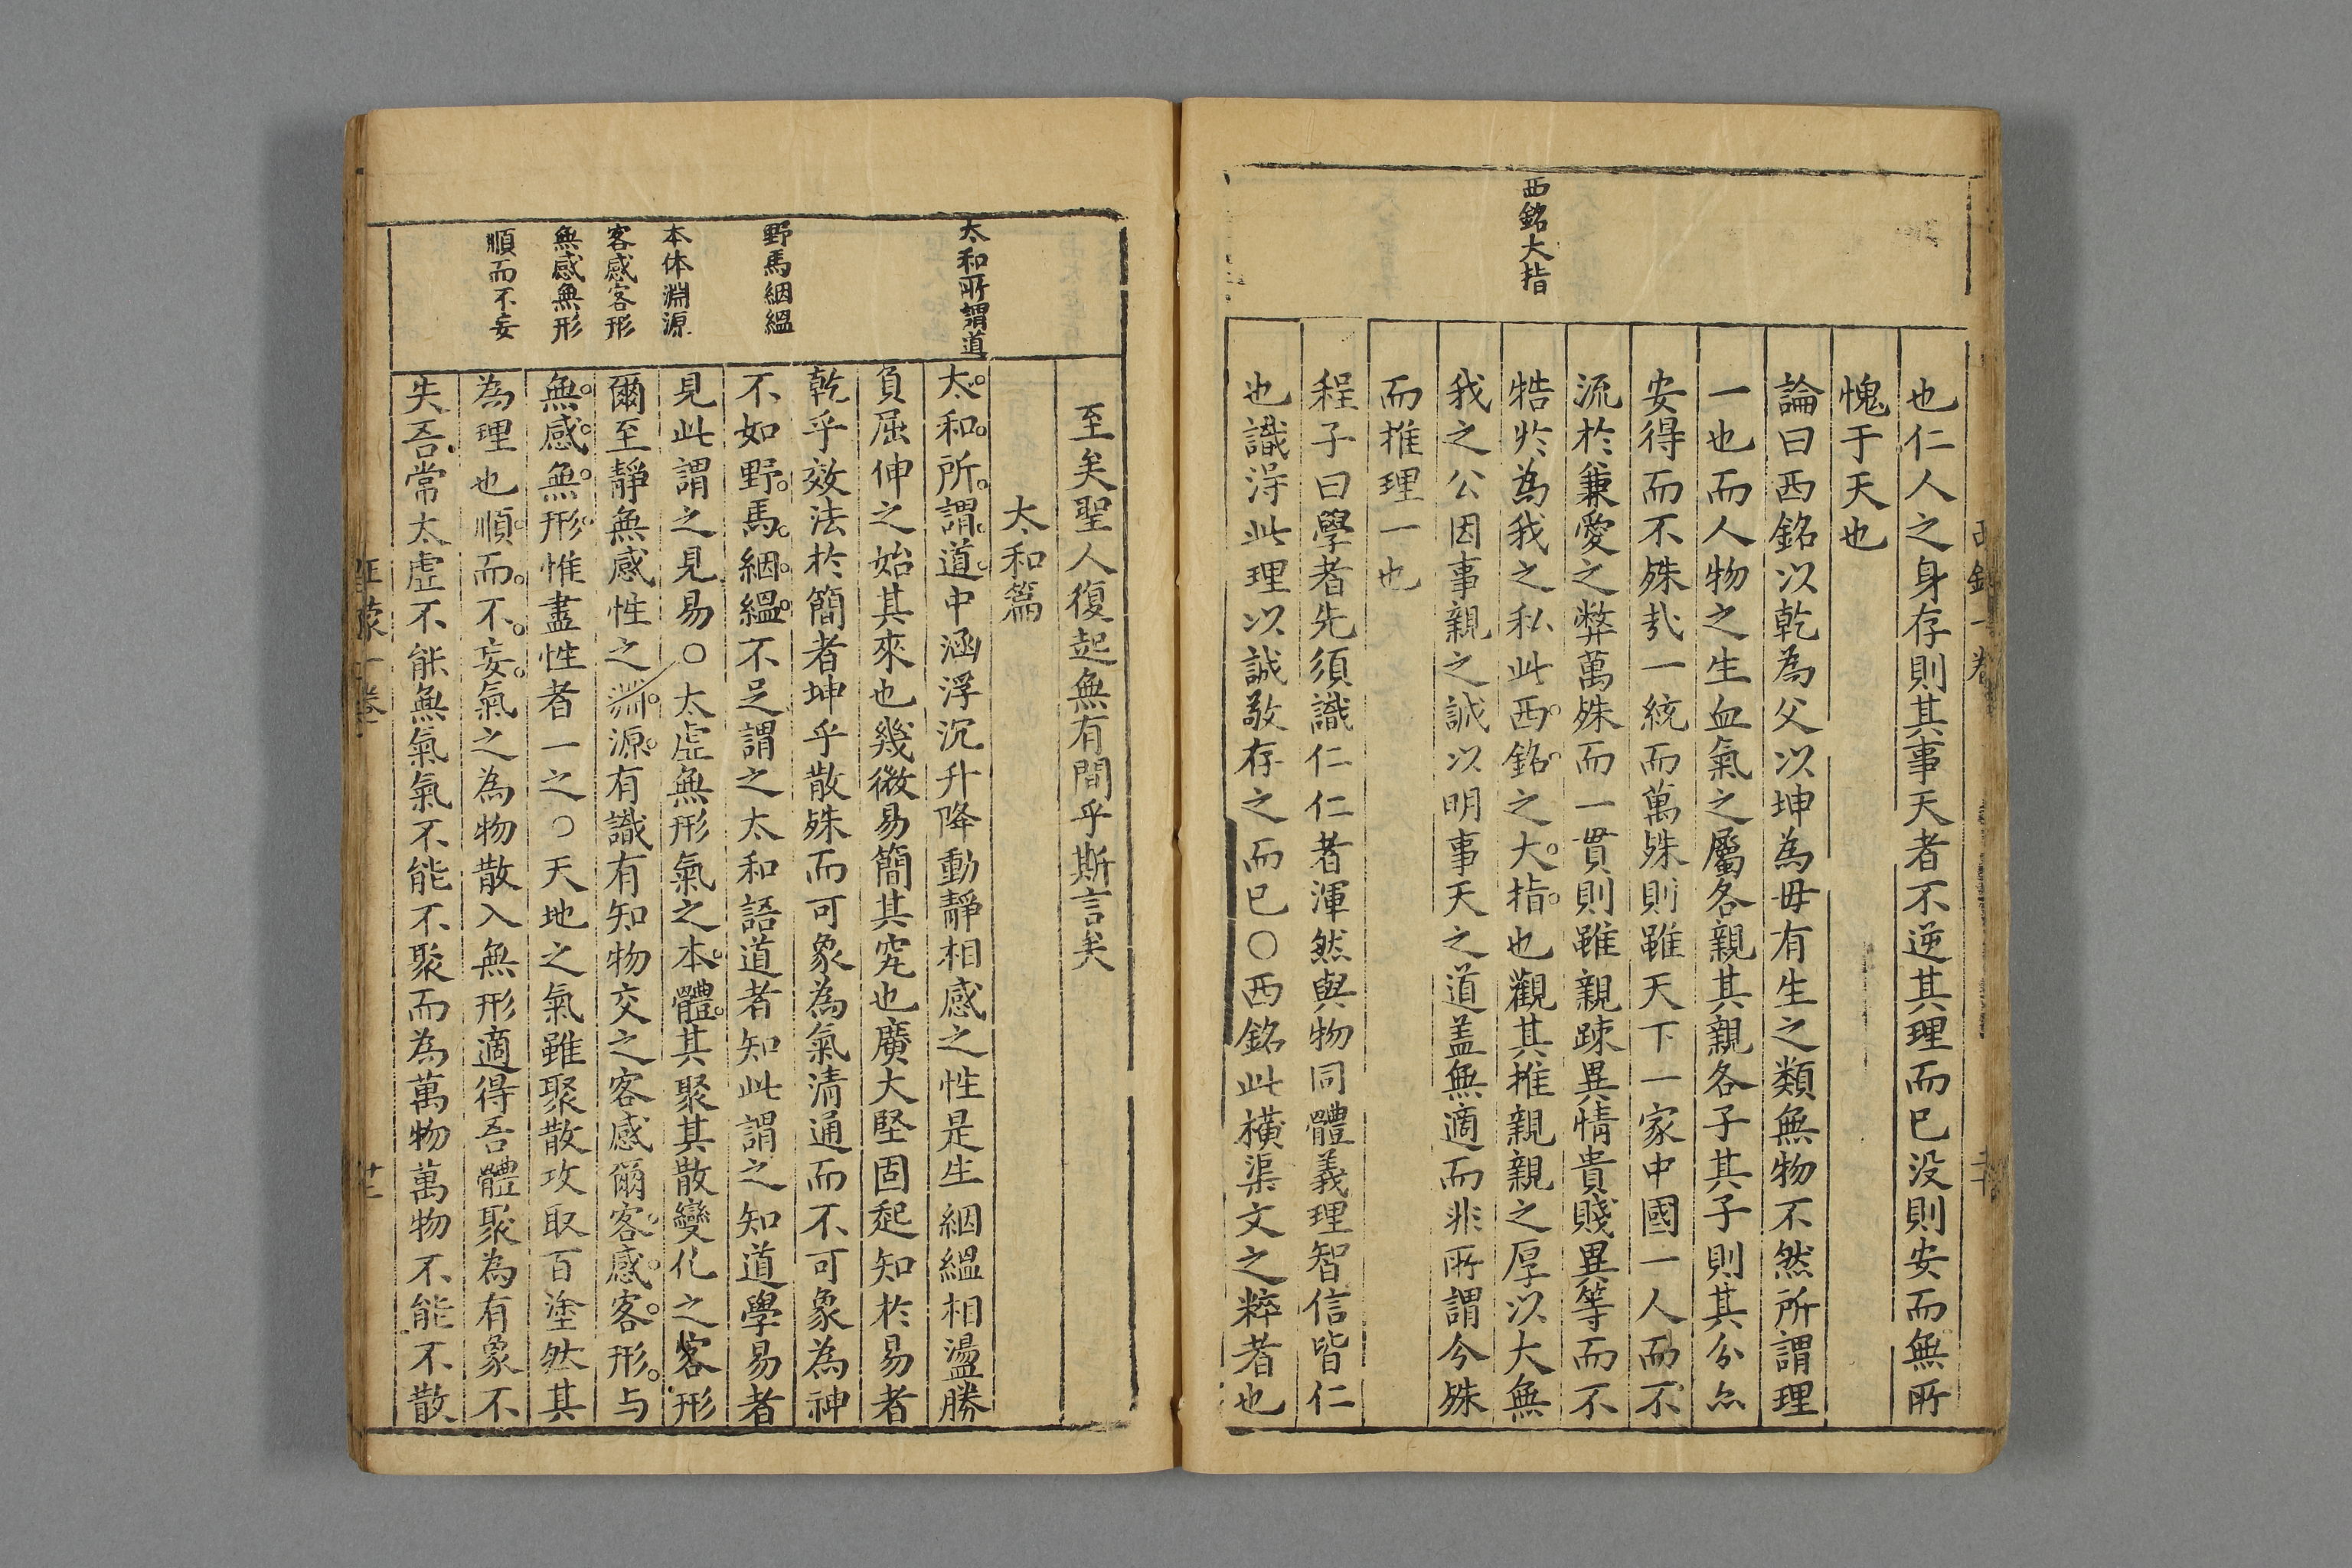 西銘大指
也仁人之身存則其事天者不逆其理而已没則安而無所
愧于天也
論曰西銘以乾為父以坤為毋有生之類無物不然所謂理
一也而人物之生血氣之屬各親其親各子其子則其分亦
安得而不殊㢤一統而萬殊則雖天下一家中國一人而不
流於兼愛之弊萬殊而一貫則雖親踈異情貴賤異等而不
牿於為我之私此西銘之大指也觀其推親親之厚以大無
我之公因事親之誠以明事天之道盖無適而非所謂今殊
而推理一也
程子曰學者先須識仁仁者渾然與物同體義理智信皆仁
也識淂此理以誠敬存之而已〇西銘此横渠文之粹者也
至矣聖人復起無有間乎斯言矣
太和篇
太和所謂道
野馬絪緼
本体淵源
客感客形
無感無形
順而不妄
太和所謂道中涵浮沉升降動靜相感之性是生絪緼相盪勝
負屈伸之始其來也幾微易簡其究也廣大堅固起知於易者
乾乎效法於簡者坤乎散殊而可象為氣清通而不可象為神
不如野馬絪緼不足謂之太和語道者知此謂之知道學易者
見此謂之見易〇太虛無形氣之本體其聚其散變化之客形
爾至靜無感性之淵源有識有知物交之客感爾客感客形与
無感無形惟盡性者一之〇天地之氣雖聚散攻取百塗然其
為理也順而不妄氣之為物散入無形適得吾體聚為有象不
失吾常太虛不能無氣氣不能不聚而為萬物萬物不能不散